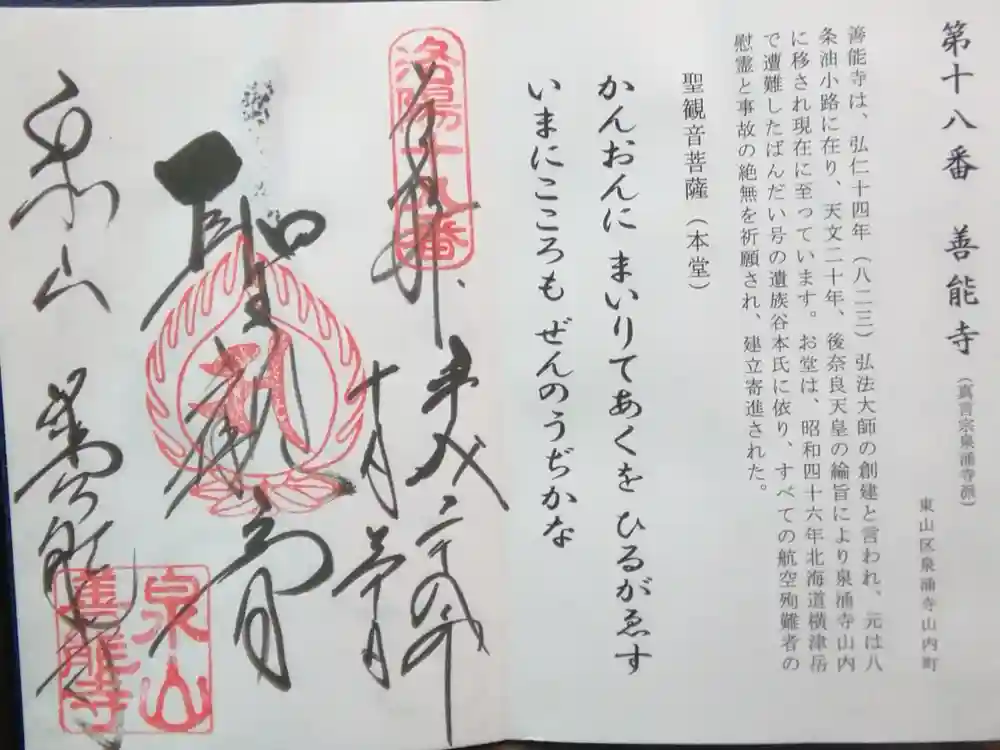 第十八番 善能寺 (真言宗泉涌寺派)
東山区泉涌寺山内町
善能寺は、弘仁十四年（八二三）弘法大師の創建と言われ、元は八
条油小路に在り、天文二十年、後奈良天皇の綸旨により泉涌寺山内
に移され現在に至っています。お堂は、昭和四十六年北海道横津岳
で遭難したばんだい号の遺族谷本氏に依り、すべての航空殉難者の
慰霊と事故の絶無を祈願され、建立寄進された。
聖観音菩薩（本堂）
かんおんに まいりてあくを ひるがゑす
いまにこころも ぜんのうぢかな
洛陽十八番
奉拝
平成二十四年
十月
聖観音
泉山
善能寺
泉山
善能寺